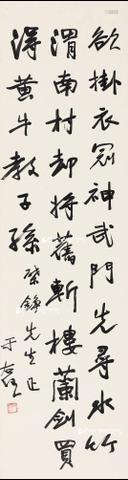 欲掛衣冠神武門先尋水竹
渭南村却將舊斬樓蘭劍買
得黃牛教子孫
先生正
于右任